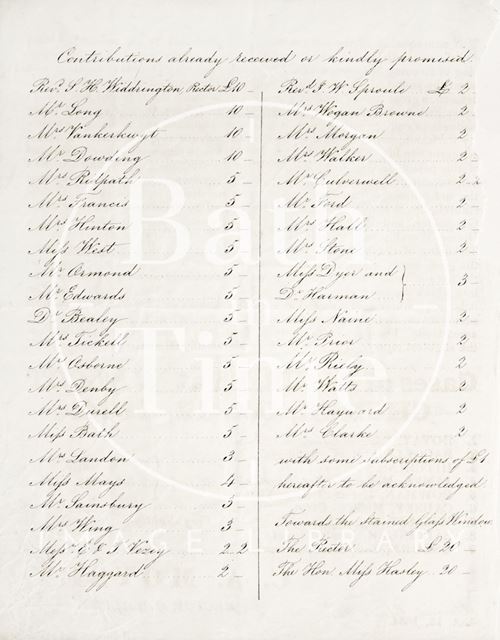 Contributions already received or kindly promised.
Revd. S. H. Widdrington Rector £10 –
Mr Long 10 –
Mrs Vankerkwyt 10 –
Mr Dowding 10 –
Mrs Relpath 5 –
Mrs Francis 5 –
Mrs Hinton 5 –
Miss West 5 –
Mr Ormond 5 –
Mr Edwards 5 –
Dr Bealey 5 –
Mrs Tickell 5 –
Mr Osborne 5 –
Mrs Denby 5 –
Mrs Durell 5 –
Miss Bath 5 –
Mrs Landon 3 –
Miss Mays 4 –
Mr Sainsbury 5 –
Mrs Wing 3 –
Messrs E & I Vezey 2 . 2
Mr Haggard 2 –
Revd. J. W. Sproule £ 2 –
Mrs Wogan Browne 2 –
Mrs Morgan 2 –
Mrs Walker 2 –
Mr Culverwell 2 . 2
Mr Ford 2 –
Mrs Hall 2 –
Mrs Stone 2 –
Miss Dyer and
Dr Harman } 3 –
Miss Naine 2 –
Mr Prior 2
Mr Rixby 2
Mr Watts 2
Mr Hayward 2
Mrs Clarke 2
with some subscriptions of £1
hereafter to be acknowledged
Towards the stained Glass Window
The Rector £ 20 –
The Hon. Miss Hasley . 20 –
Bath
in
Time
IMAGE LIBRARY